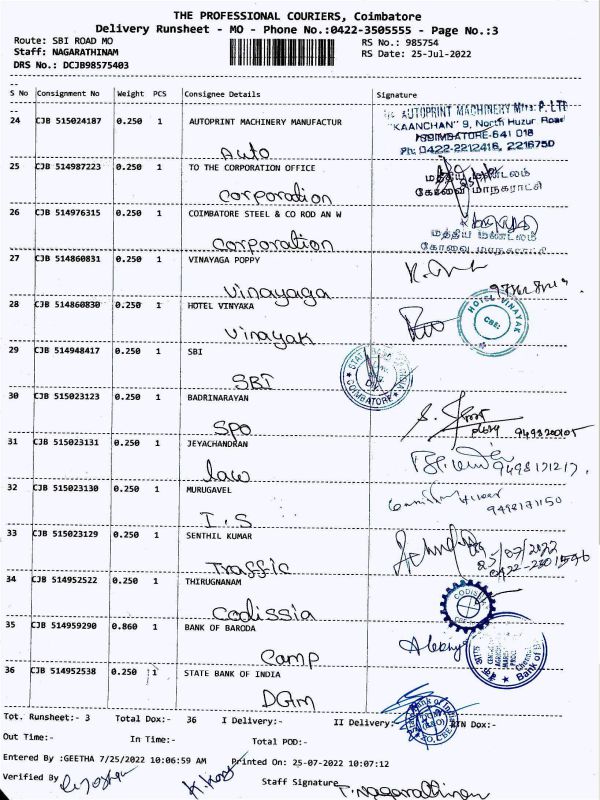 THE PROFESSIONAL COURIERS, Coimbatore
Delivery Runsheet - MO - Phone No.:0422-3505555 - Page No.:3
Route: SBI ROAD MO
RS No.: 985754
Staff: NAGARATHINAM
RS Date: 25-Jul-2022
DRS No.: DCJB98575403
S No Consignment No Weight PCS Consignee Details Signature
24 CJB 515024187 0.250 1 AUTOPRINT MACHINERY MANUFACTUR
AUTOPRINT MACHINERY Mfrs. P. LTD
"KAANCHAN" 9, North Huzur Road
COIMBATORE-641 018
Ph: 0422-2212416, 2216750
Auto
25 CJB 514987223 0.250 1 TO THE CORPORATION OFFICE
மத்திய மண்டலம்
கோவை மாநகராட்சி
Corporation
26 CJB 514976315 0.250 1 COIMBATORE STEEL & CO ROD AN W
மத்திய மண்டலம்
கோவை மாநகராட்சி
Corporation
27 CJB 514860831 0.250 1 VINAYAGA POPPY
Vinayaga
28 CJB 514860830 0.250 1 HOTEL VINYAKA
HOTEL VINAYAK
CBE
Vinayak
29 CJB 514948417 0.250 1 SBI
COIMBATORE
SBI
30 CJB 515023123 0.250 1 BADRINARAYAN
SPO
31 CJB 515023131 0.250 1 JEYACHANDRAN
law
32 CJB 515023130 0.250 1 MURUGAVEL
9498171150
I.S
33 CJB 515023129 0.250 1 SENTHIL KUMAR
25/07/2022
Traffic
34 CJB 514952522 0.250 1 THIRUGNANAM
CODISSIA
Codissia
35 CJB 514959290 0.860 1 BANK OF BARODA
Camp
36 CJB 514952538 0.250 1 STATE BANK OF INDIA
DGM
Tot. Runsheet:- 3 Total Dox:- 36 I Delivery:- II Delivery:- RTN Dox:-
Out Time:- In Time:- Total POD:-
Entered By :GEETHA 7/25/2022 10:06:59 AM Printed On: 25-07-2022 10:07:12
Verified By Staff Signature T. Nagarathinam